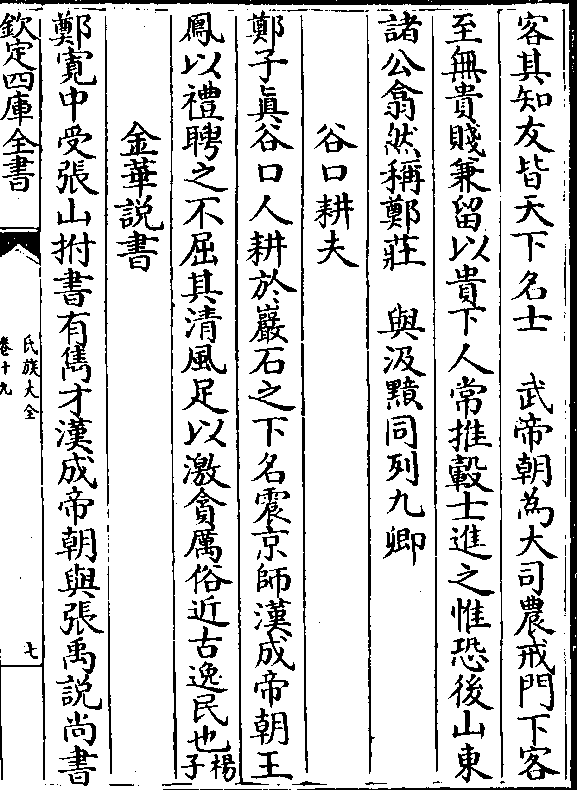 客其知友皆天下名士　武帝朝為大司農戒門下客
至無貴賤兼留以貴下人常推轂士進之惟恐後山東
諸公翕然稱鄭莊　與汲黯同列九卿
谷口耕夫
鄭子眞谷口人耕於巖石之下名震京師漢成帝朝王
鳳以禮聘之不屈其清風足以激貪厲俗近古逸民也楊子
金華説書
鄭寛中受張山拊書有雋才漢成帝朝與張禹説尚書
欽定四庫全書
氏族大全
卷十九
七